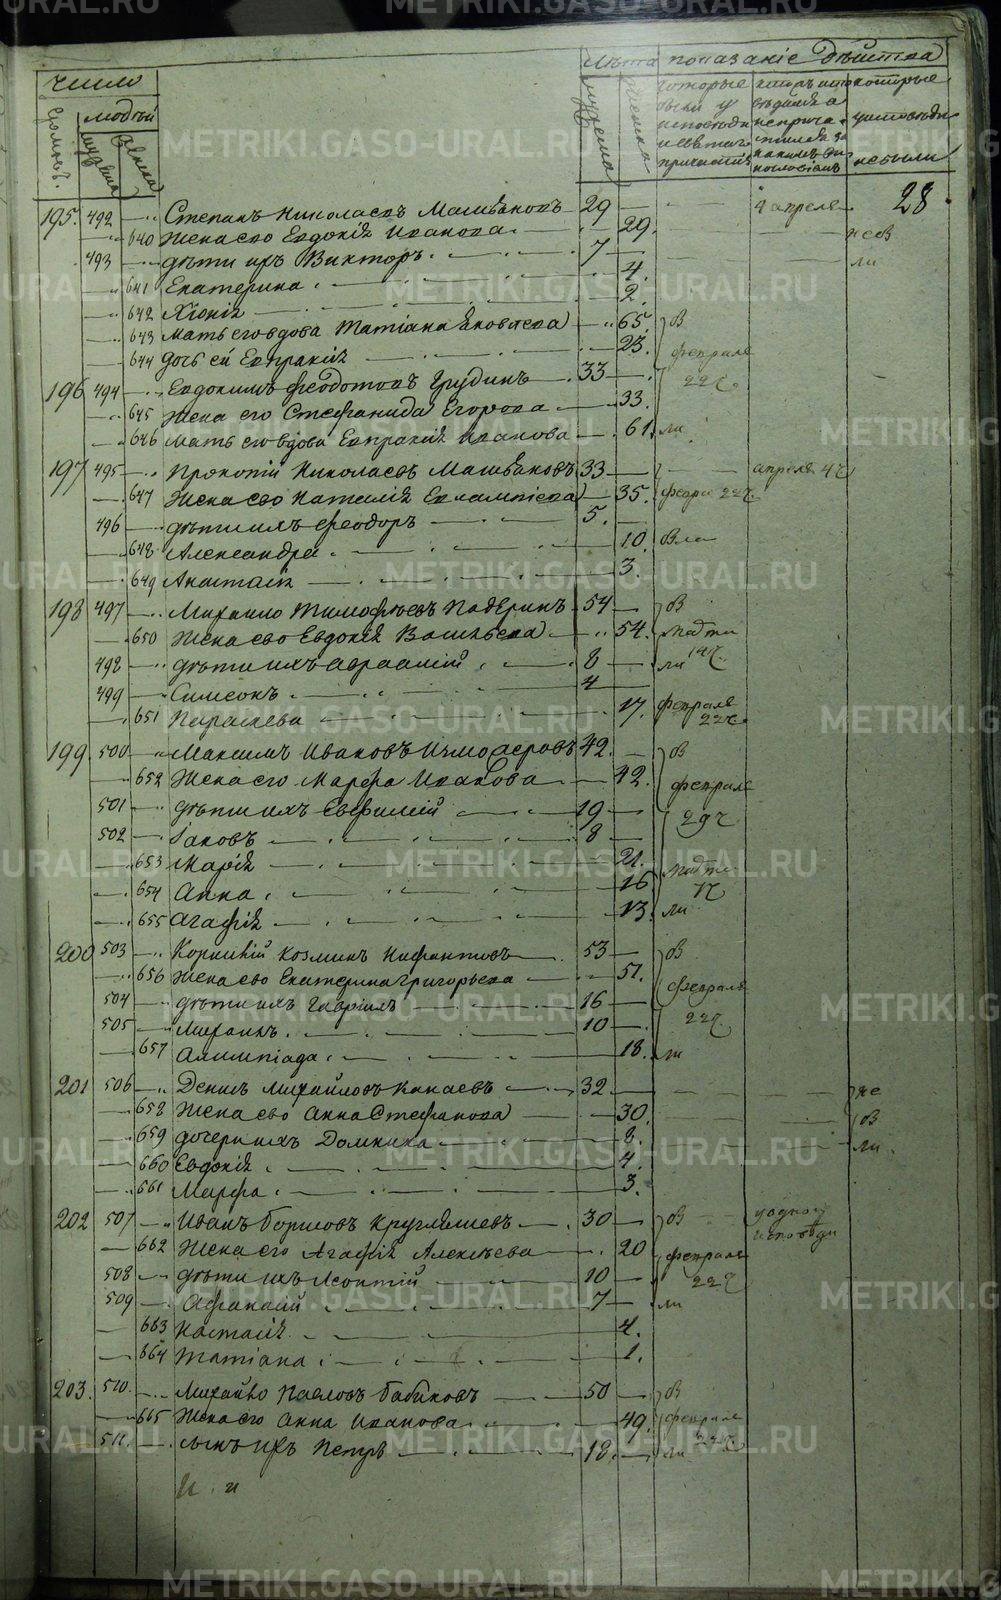 METRIKI.GASO-URAL.RU
число
людей
мужска
женска
лѣта
показаніе дѣйства
мужеска
женска
которые были у исповѣди и святаго причастія
которые исповѣдались а не причастились и за какимъ винословіемъ
которые у исповѣди не были
28
195. 492 Степанъ Николаевъ 29 4 апреля
640 Жена его Евдокія Иванова 29. не в
493 дѣти ихъ Викторъ 7 ли
641 Екатерина 4.
642 Хіонія 2.
643 Мать его вдова Татіана Яковлева 65. в
644 дочь ей Евпраксія 23. февраля
196 494 Евдокимъ Феодотовъ Грудинъ 33 22 ч.
645 Жена его Стефанида Егорова 33.
646 Мать его вдова Евпраксія Иванова 61. ли
197 495 Прокопій Николаевъ 33 апреля 4 ч
647 Жена его Наталія Евлампіева 35. февра 22 ч.
496 дѣти ихъ Феодоръ 5.
648 Александра 10.
649 Анастасія 3.
198 497 Михайло Тимофѣевъ Падеринъ 54 в
650 Жена его Евдокія Васильева 54. марта
498 дѣти ихъ Авраамій 8 ли 14 ч.
499 Симеонъ 4
651 Параскева 17. февраля 22 ч.
199 500 Максимъ Ивановъ 42. в
652 Жена его Марфа Иванова 42. февраля
501 дѣти ихъ Евфимій 19 29 ч
502 Іаковъ 8
653 Марія 21. марта
654 Анна 16 1 ч
655 Агафія 13. ли
200 503 Корнилій Козминъ Нифантовъ 53 в
656 Жена его Екатерина Григорьева 51. февраля
504 дѣти ихъ Гавріилъ 16 22 ч.
505 Михаилъ 10
657 Алимпіада 18. ли
201 506 Денисъ Михайловъ Канаевъ 32 не
658 Жена его Анна Стефанова 30. в
659 дочери ихъ Домникa 8. ли.
660 Евдокія 4
661 Марфа 3.
202 507 Иванъ Борисовъ Кругляшевъ 30 в у одной исповѣди
662 Жена его Агафія Алексѣева 20 февраля
508 дѣти ихъ Леонтій 10 22 ч
509 Афанасій 7 ли
663 Настасія 4.
664 Татіана 1.
203. 510 Михайло Павловъ Бабиковъ 50 в
665 Жена его Анна Иванова 49. февраля
511 сынъ ихъ Петръ 18. ли 22 ч